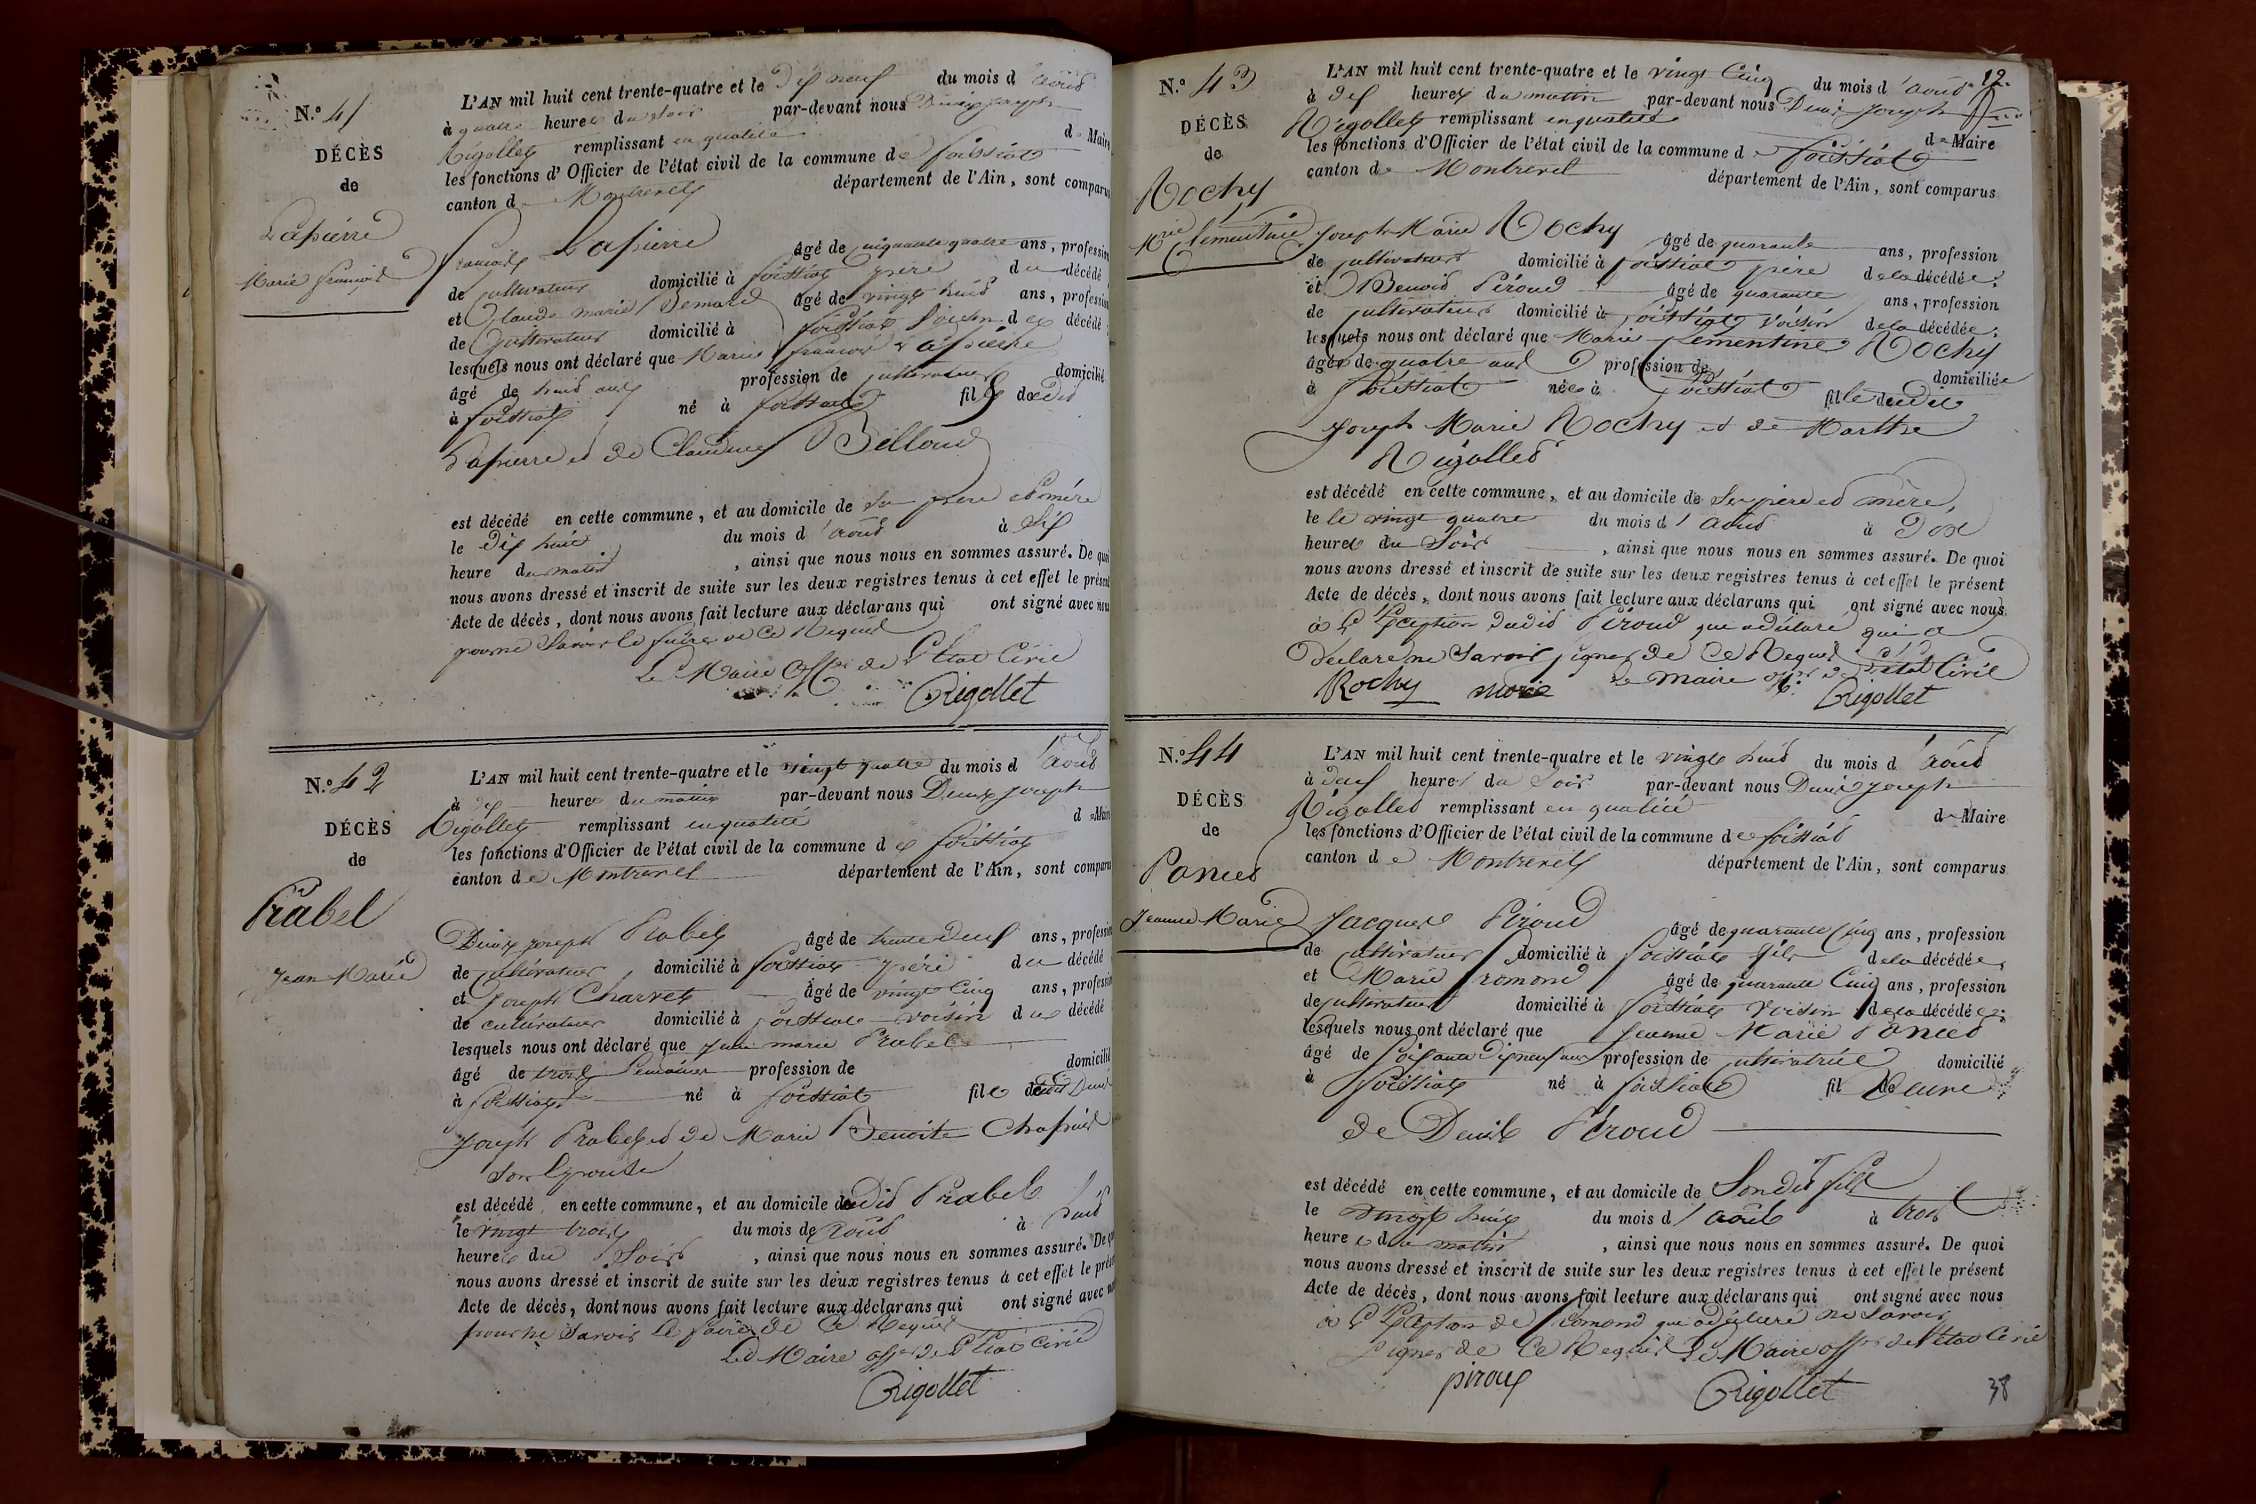 N.° 41
DÉCÈS
de
Lapierre
Marie françois
L'AN mil huit cent trente-quatre et le dix neuf du mois d'août
à quatre heures du soir par-devant nous Denis joseph
Rigollet remplissant en qualité d Maire
les fonctions d'Officier de l'état civil de la commune de foissiat
canton de Montrevel département de l'Ain, sont comparus
françois Lapierre âgé de cinquante quatre ans, profession
de cultivateur domicilié à foissiat père du décédé
et Claude marie âgé de vingt huit ans, profession
de cultivateur domicilié à foissiat voisin du décédé
lesquels nous ont déclaré que Marie françois Lapierre
âgé de huit ans profession de cultivateur domicilié
à foissiat né à foissiat fils dudit
Lapierre et de Claudine Billoud
est décédé en cette commune, et au domicile de Son père et mère
le dix huit du mois d'août à Six
heure du matin, ainsi que nous nous en sommes assuré. De quoi
nous avons dressé et inscrit de suite sur les deux registres tenus à cet effet le présent
Acte de décès, dont nous avons fait lecture aux déclarans qui ont signé avec nous
pour ne Savoir le faire de Ce Requis
Le Maire Off de l'Etat Civil
Rigollet
N.° 42
DÉCÈS
de
Prabel
Jean Marie
L'AN mil huit cent trente-quatre et le vingt quatre du mois d'août
à dix heures du matin par-devant nous Denis joseph
Rigollet remplissant en qualité d Maire
les fonctions d'Officier de l'état civil de la commune de foissiat
canton de Montrevel département de l'Ain, sont comparus
Denis joseph Prabel âgé de trente deux ans, profession
de cultivateur domicilié à foissiat père du décédé
et Joseph Charvet âgé de vingt Cinq ans, profession
de cultivateur domicilié à foissiat voisin du décédé
lesquels nous ont déclaré que jean marie Prabel
âgé de trois Semaines profession de domicilié
à foissiat né à foissiat fils dudit Denis
Joseph Prabel et de Marie Benoite
Son Epouse
est décédé en cette commune, et au domicile dudit Prabel
le vingt trois du mois de août à huit
heures du Soir, ainsi que nous nous en sommes assuré. De quoi
nous avons dressé et inscrit de suite sur les deux registres tenus à cet effet le présent
Acte de décès, dont nous avons fait lecture aux déclarans qui ont signé avec nous
pour ne Savoir le faire de Ce Requis
Le Maire off de l'Etat Civil
Rigollet
12
N.° 43
DÉCÈS
de
Rochy
Mrie Clementine
L'AN mil huit cent trente-quatre et le vingt Cinq du mois d'août
à dix heures du matin par-devant nous Denis Joseph
Rigollet remplissant en qualité d Maire
les fonctions d'Officier de l'état civil de la commune de foissiat
canton de Montrevel département de l'Ain, sont comparus
Joseph Marie Rochy âgé de quarante ans, profession
de cultivateur domicilié à foissiat père de la décédée
et Benoit Péroud âgé de quarante ans, profession
de cultivateur domicilié à foissiat voisin de la décédée
lesquels nous ont déclaré que Marie Clementine Rochy
âgée de quatre ans profession de domiciliée
à foissiat née à foissiat fille dudit
Joseph Marie Rochy et de Marthe
Rigollet
est décédé en cette commune, et au domicile de Ses père et mère,
le le vingt quatre du mois d'Août à Dix
heures du Soir, ainsi que nous nous en sommes assuré. De quoi
nous avons dressé et inscrit de suite sur les deux registres tenus à cet effet le présent
Acte de décès, dont nous avons fait lecture aux déclarans qui ont signé avec nous
à l'Exception dudit Péroud que a déclaré qui a
Déclare ne Savoir signer de Ce Requis
Le Maire offr de l'état Civil
Rochy marie Rigollet
N.° 44
DÉCÈS
de
Poncet
Jeanne Marie
L'AN mil huit cent trente-quatre et le vingt huit du mois d'août
à deux heures du Soir par-devant nous Denis Joseph
Rigollet remplissant en qualité d Maire
les fonctions d'Officier de l'état civil de la commune de foissiat
canton de Montrevel département de l'Ain, sont comparus
Jacques Péroud âgé de quarante Cinq ans, profession
de cultivateur domicilié à foissiat fils de la décédée
et Marie fromond âgé de quarante Cinq ans, profession
de cultivateur domicilié à foissiat voisin de la décédée
lesquels nous ont déclaré que jeanne Marie Poncet
âgé de Soixante dix neuf ans profession de cultivatrice domicilié
à foissiat né à foissiat fil de Veuve
de Denis Péroud
est décédé en cette commune, et au domicile de Son dit fils
le vingt huit du mois d'août à trois
heures du matin, ainsi que nous nous en sommes assuré. De quoi
nous avons dressé et inscrit de suite sur les deux registres tenus à cet effet le présent
Acte de décès, dont nous avons fait lecture aux déclarans qui ont signé avec nous
à l'Exception de fromond que a déclaré ne Savoir
Signer de Ce Requis Le Maire offr de l'état Civil
piroux Rigollet
38